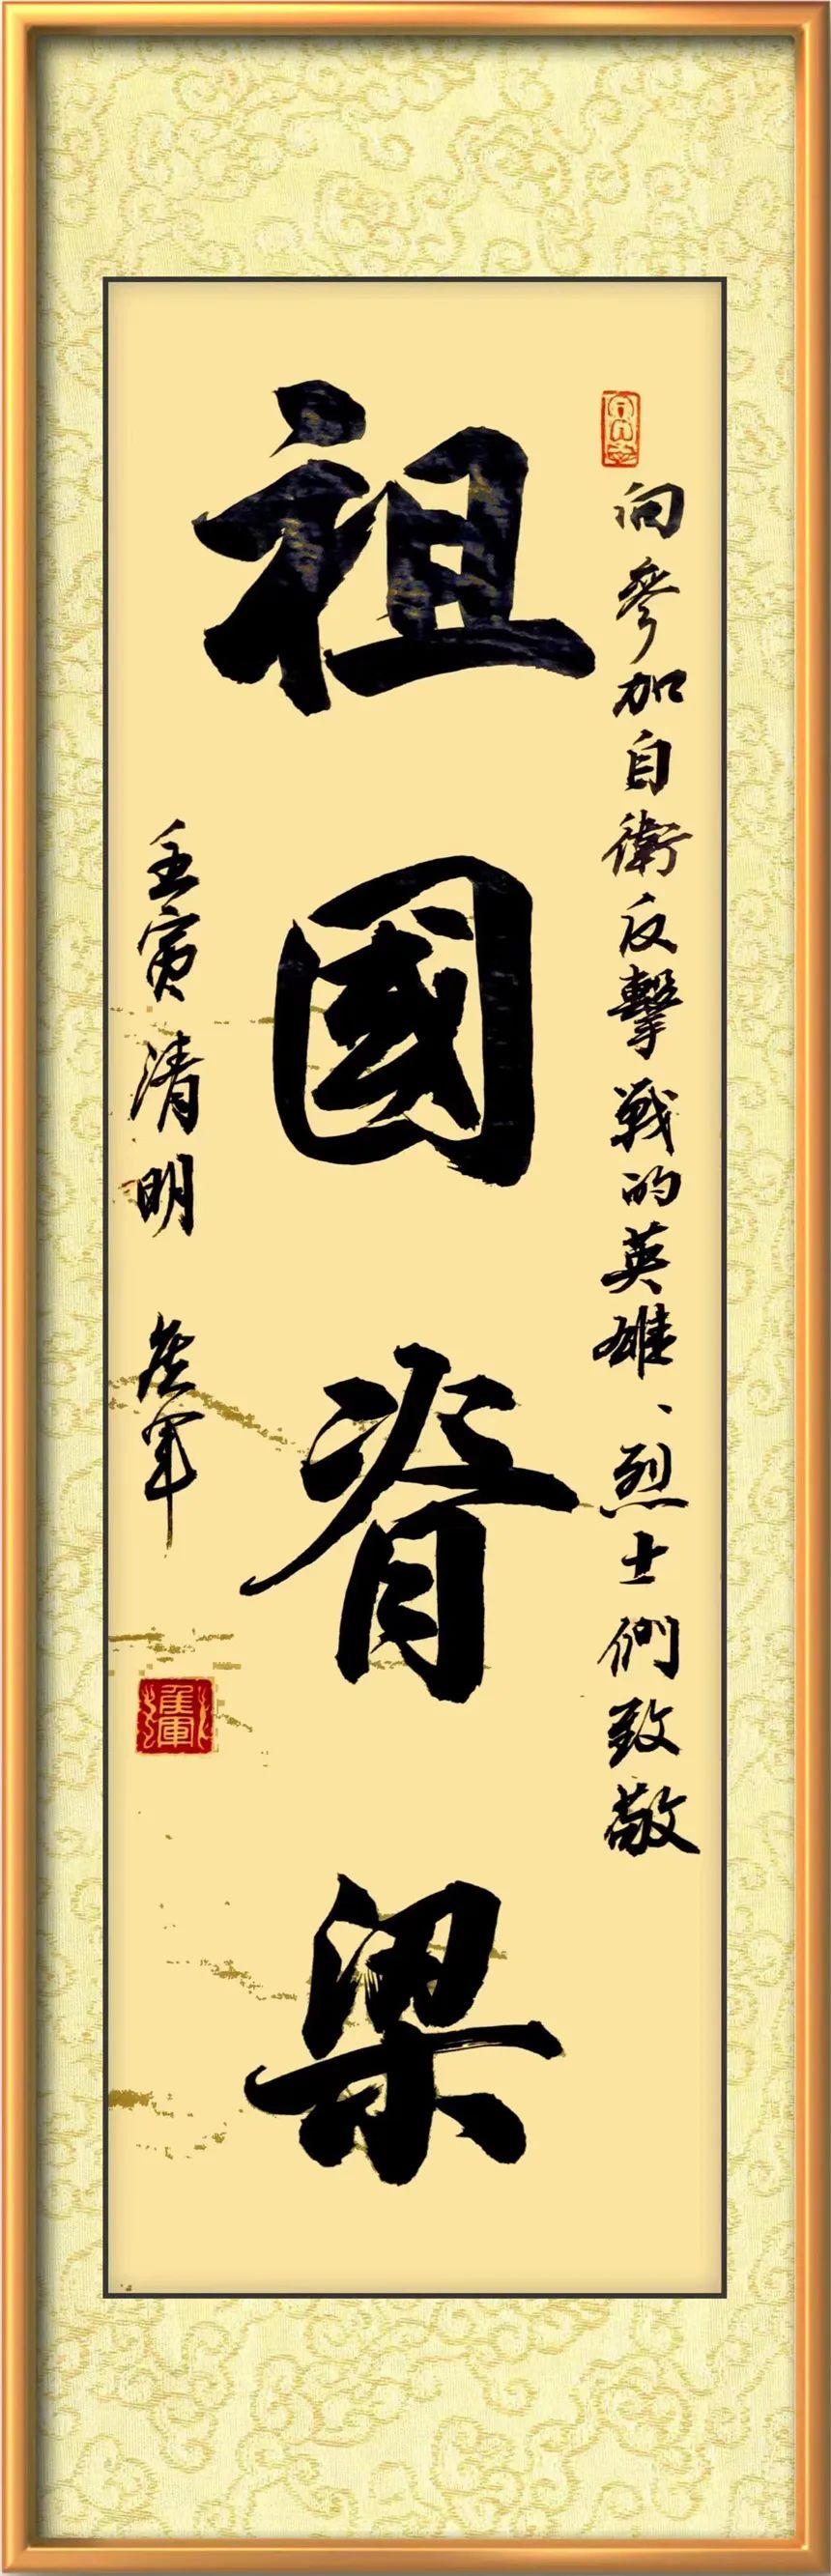 向參加自衛反擊戰的英雄、烈士們致敬
祖國脊梁
壬寅清明 軍